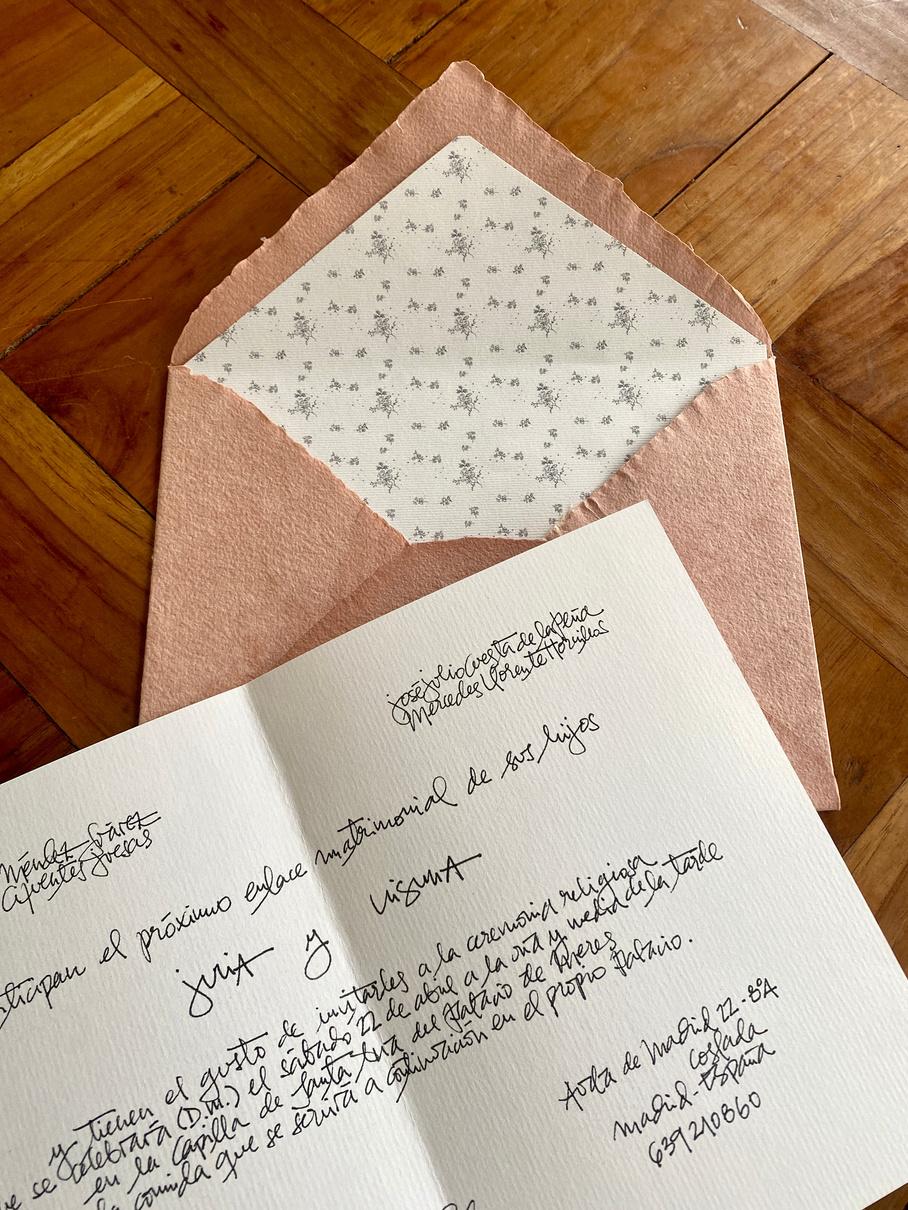 José Julio Cuesta de la Peña
Mercedes Llorente Hornillos
Méndez Suárez
Cifuentes Juesas
ticipan el próximo enlace matrimonial de sus hijos
Julia y
y tienen el gusto de invitarles a la ceremonia religiosa
ue se celebrará (D.m.) el sábado 22 de abril a la una y media de la tarde
en la Capilla de Santa Ana del Palacio de Meres
la comida que se servirá a continuación en el propio Palacio.
Avda de Madrid 22-8ºA
Coslada
Madrid-España
639210860